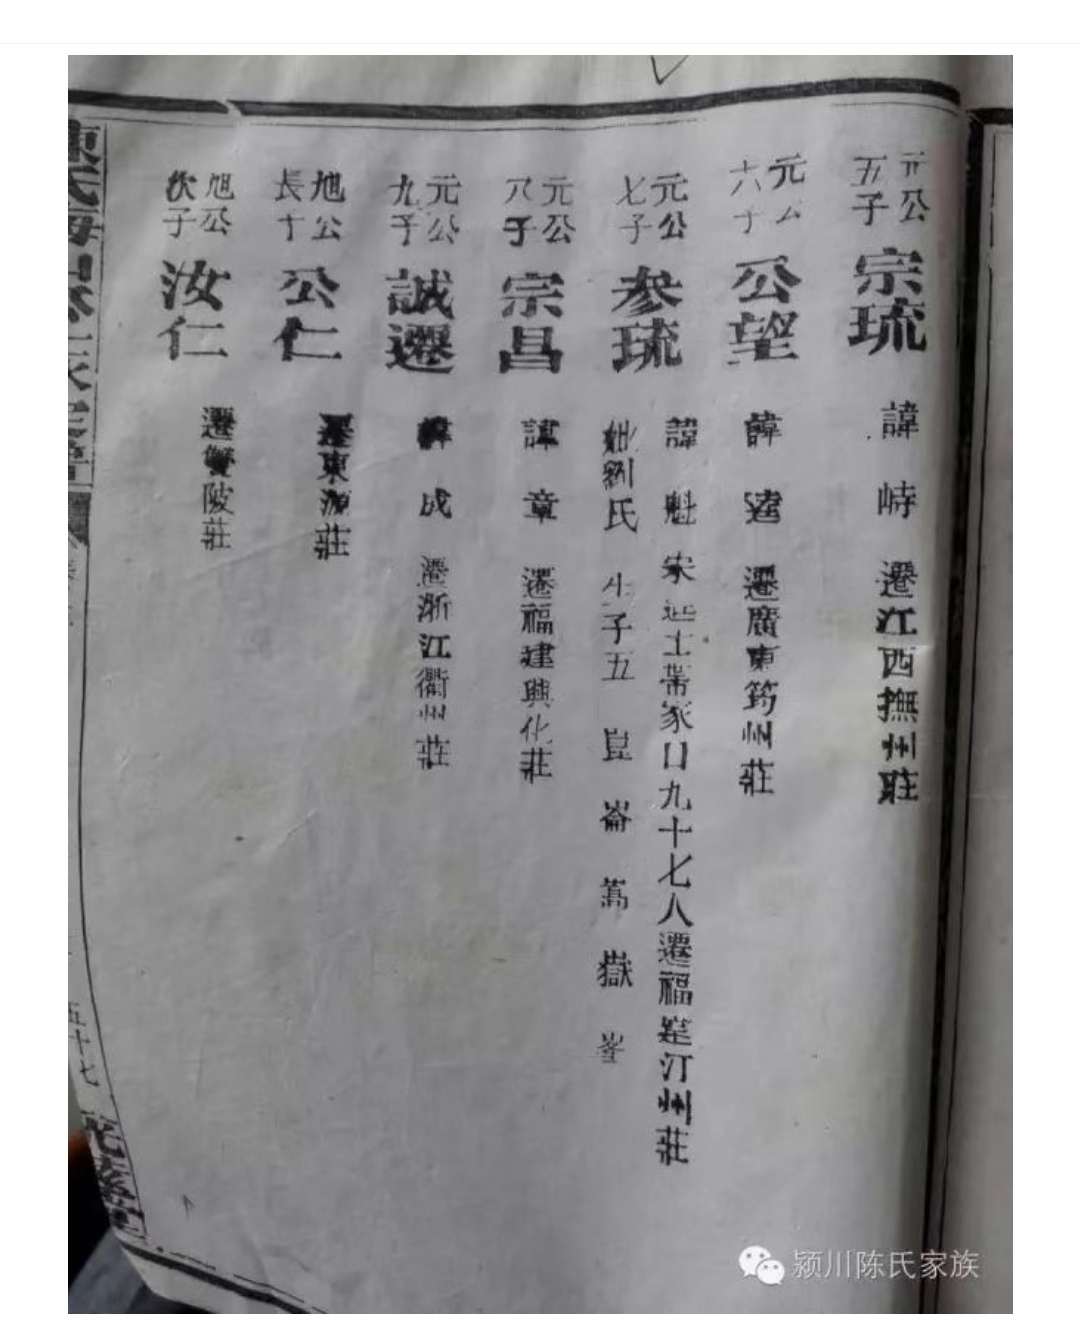 元公五子
宗琉
諱峙 遷江西撫州莊
元公六子
公望
諱逵 遷廣東筠州莊
元公七子
參琉
諱魁 宋進士帶家口九十七人遷福建汀州莊
妣劉氏 生子五 崑 崙 嵩 嶽 峯
元公八子
宗昌
諱章 遷福建興化莊
元公九子
誠遷
諱成 遷浙江衢州莊
旭公長子
公仁
遷東源莊
旭公次子
汝仁
遷雙陂莊
陳氏
五十七
颍川陈氏家族